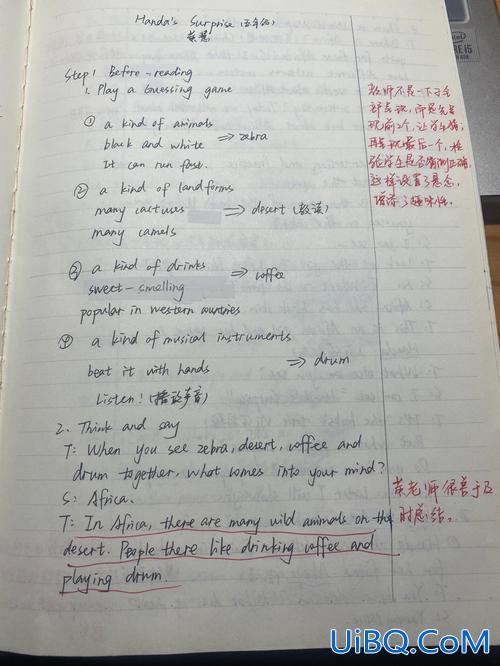 Handa's Surprise (五年级)
蔡慧
Step 1 Before-reading
1. Play a Guessing game
① a kind of animals
black and white ⇒ zebra
It can run fast.
② a kind of landforms
many cactuses ⇒ desert (教读)
many camels
③ a kind of drinks ⇒ coffee
sweet-smelling
popular in western countries
④ a kind of musical instruments
beat it with hands ⇒ drum
Listen! (播放声音)
2. Think and say
T: When you see zebra, desert, coffee and
drum together, what comes into your mind?
S: Africa.
T: In Africa, there are many wild animals on the
desert. People there like drinking coffee and
playing drum.
教师不是一下子全
部呈现,而是先呈
现前2个,让学生猜,
再呈现最后一个,检
验学生是否猜测正确,
这样设置了悬念,
增添了趣味性。
蔡老师很善于及
时总结。
intel
CORE i5
UiBQ.CoM